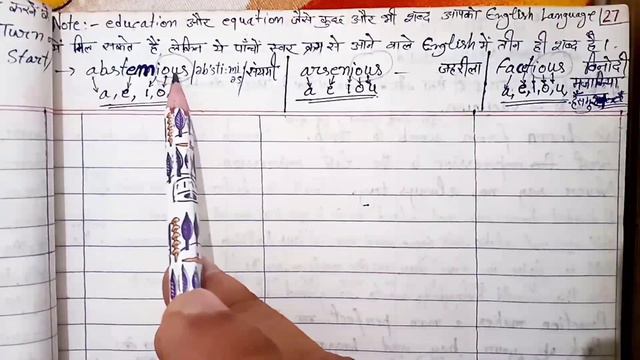 करने से Note:- education और equation जैसे कुछ और भी शब्द आपको English Language 27
Turn में मिल सकते हैं लेकिन ये पाँचों स्वर क्रम से आने वाले English में तीन ही शब्द हैं।
Start → abstemious / संयमी arsenious - जहरीला Facetious विनोदी
a, e, i, o a e i o u a, e, i, o, u, मजाकिया